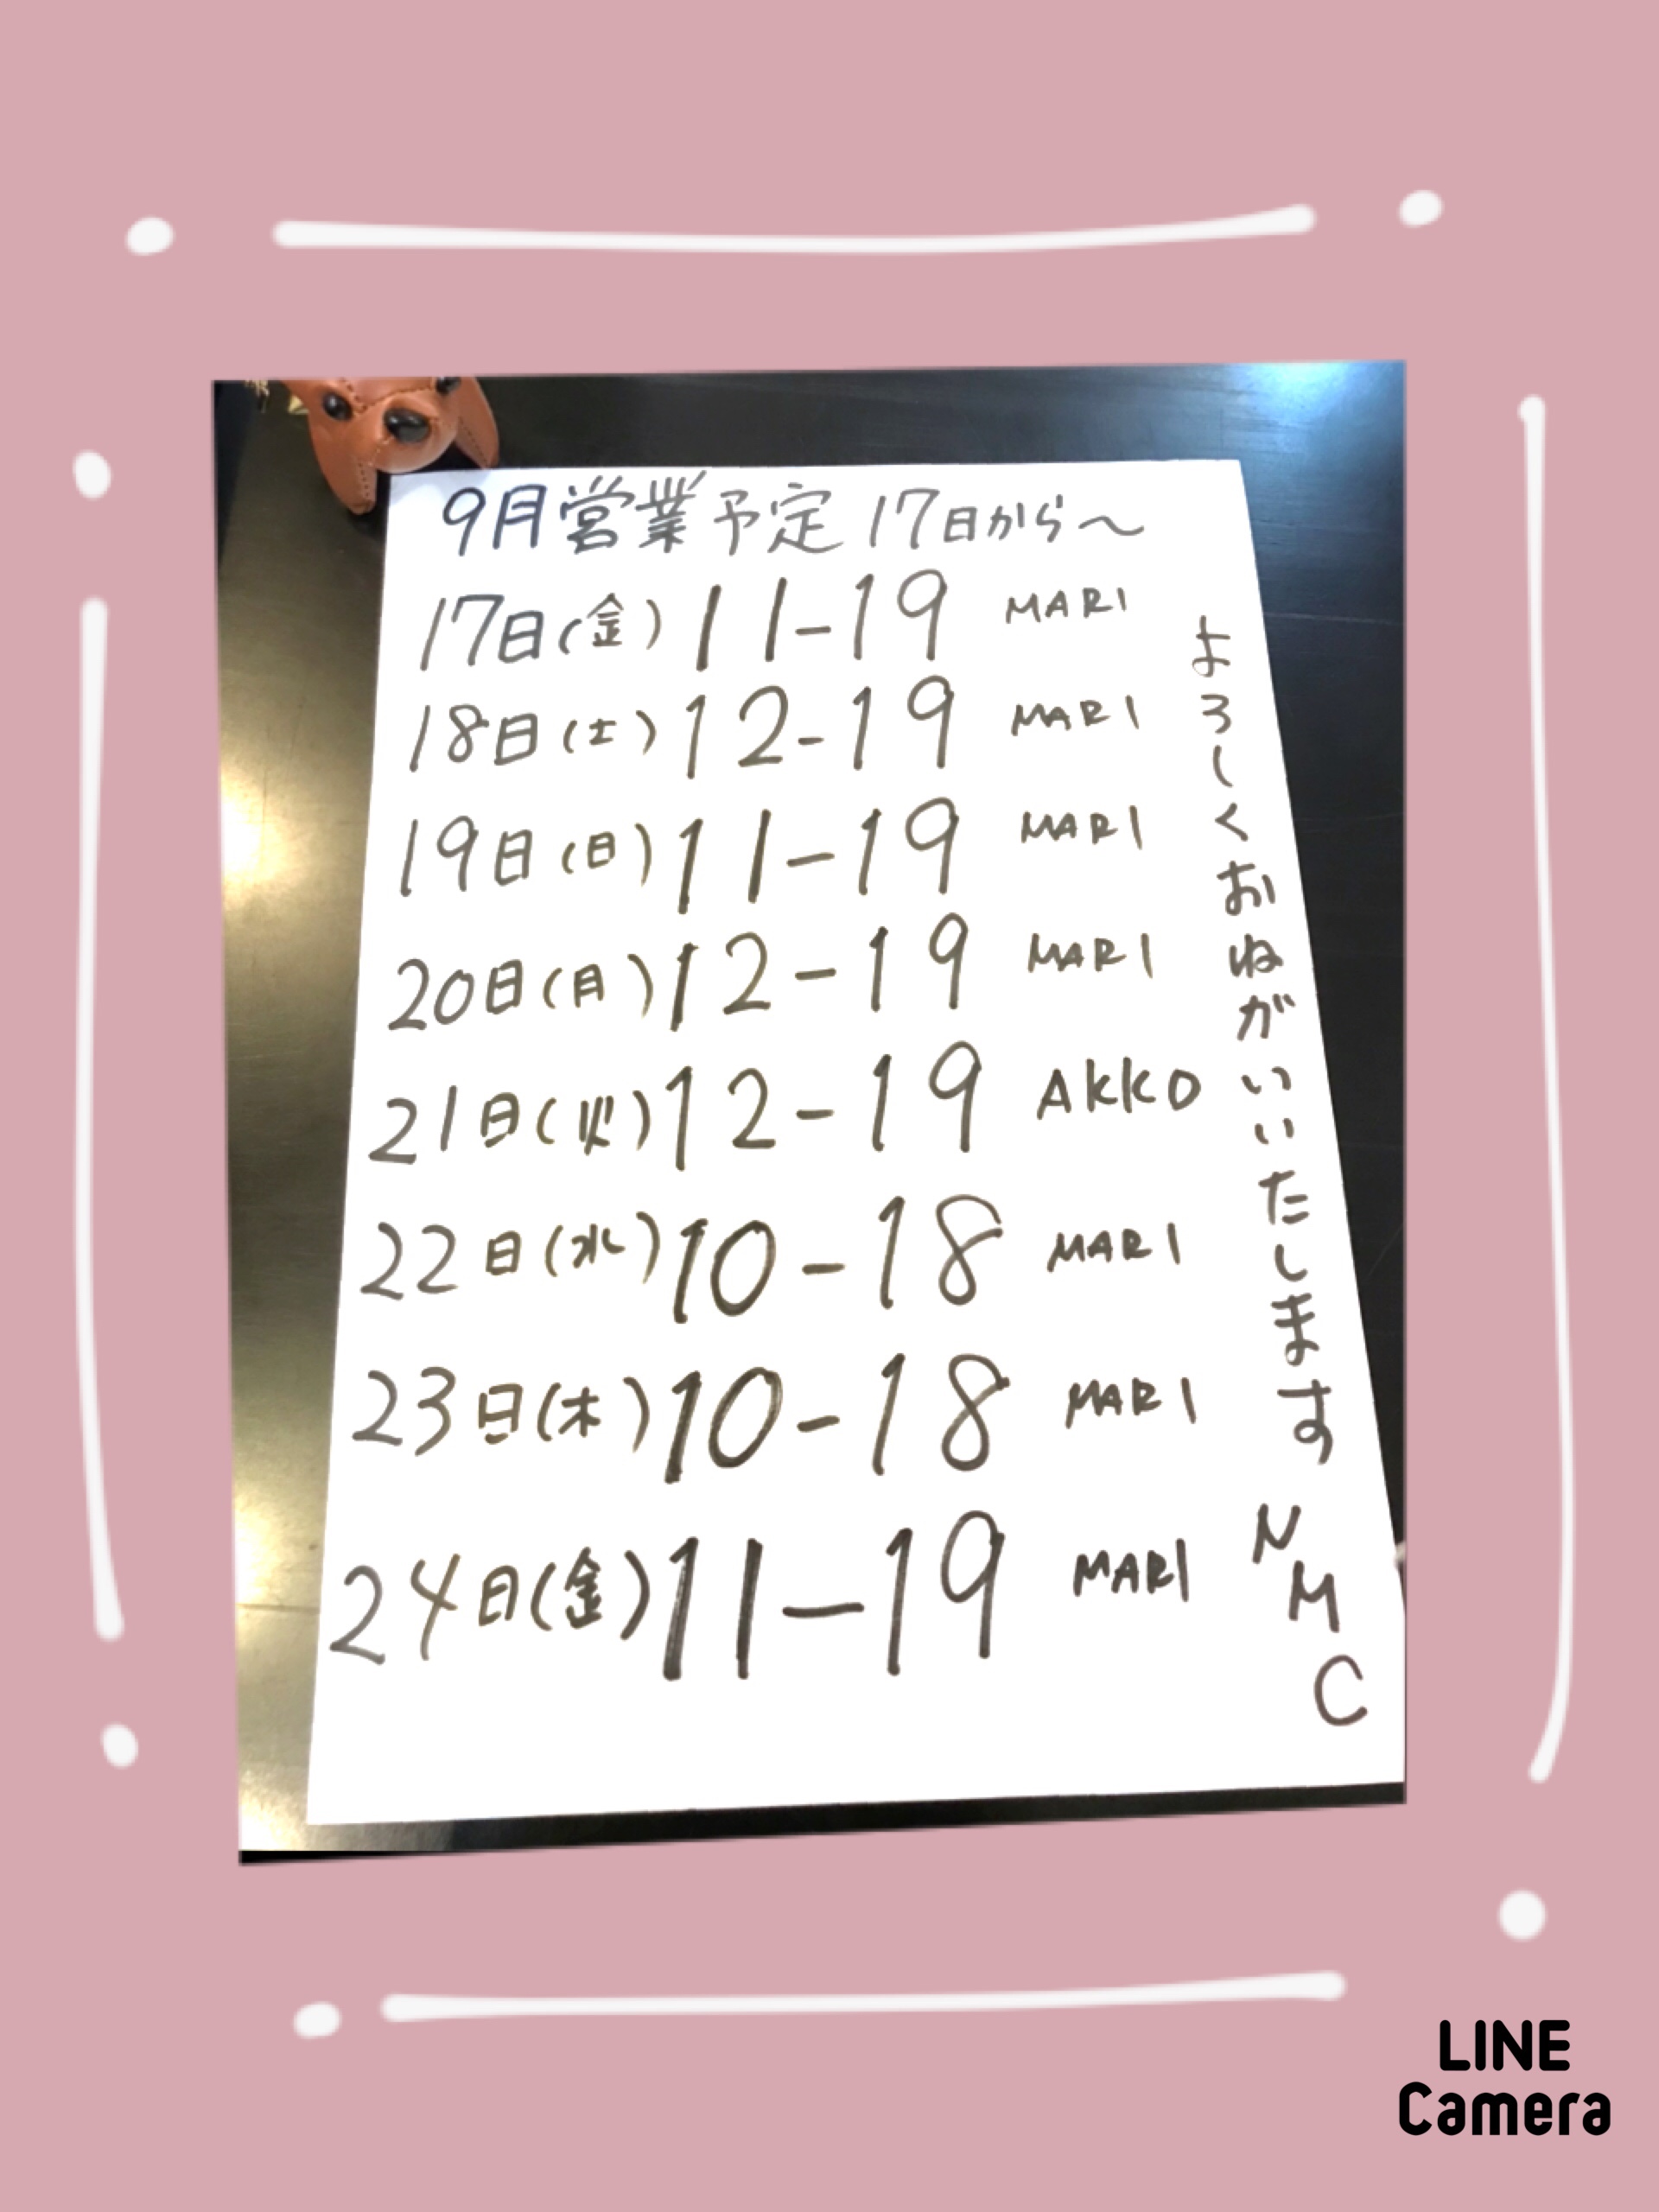 9月営業予定 17日から〜
17日(金) 11-19 MARI
18日(土) 12-19 MARI
19日(日) 11-19 MARI
20日(月) 12-19 MARI
21日(火) 12-19 AKKO
22日(水) 10-18 MARI
23日(木) 10-18 MARI
24日(金) 11-19 MARI
よろしくおねがいいたします
NMC
LINE
Camera